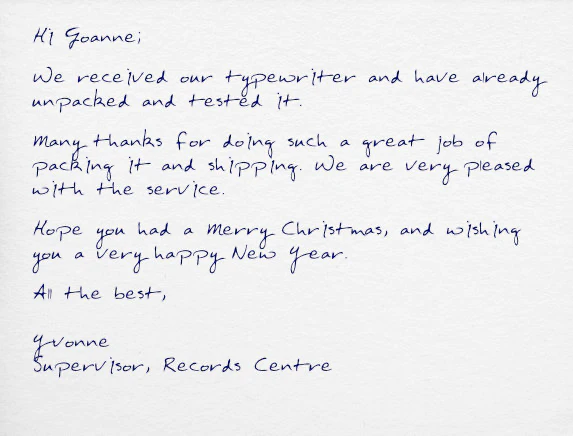 Hi Joanne;
We received our typewriter and have already
unpacked and tested it.
Many thanks for doing such a great job of
packing it and shipping. We are very pleased
with the service.
Hope you had a Merry Christmas, and wishing
you a very happy New Year.
All the best,
Yvonne
Supervisor, Records Centre